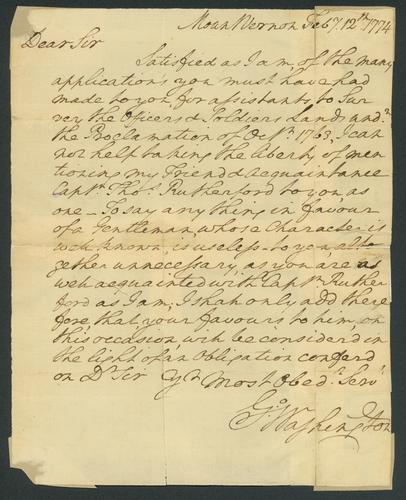 Mount Vernon Feby. 12th. 1774
Dear Sir
Satisfied as I am, of the many
applications you must have had
made to you, for assistants, to Sur-
vey the Officers & Soldiers Lands undr.
the Proclamation of Octr. 1763, I can
not help taking the liberty of men
tioning my Friend & Acquaintance
Captn. Thos. Rutherford to you, as
one – To say any thing in favour
of a Gentleman, whose Character is
well known, is useless – to you alto
gether unnecessary, as you are as
well acquainted with Captn. Ruther
ford as I am; I shall only add there
fore, that your favours to him, on
this occasion will be considerd in
the light of an Obligation conferd
on Dr. Sir Yr. Most Obedt. Servt.
Go. Washington